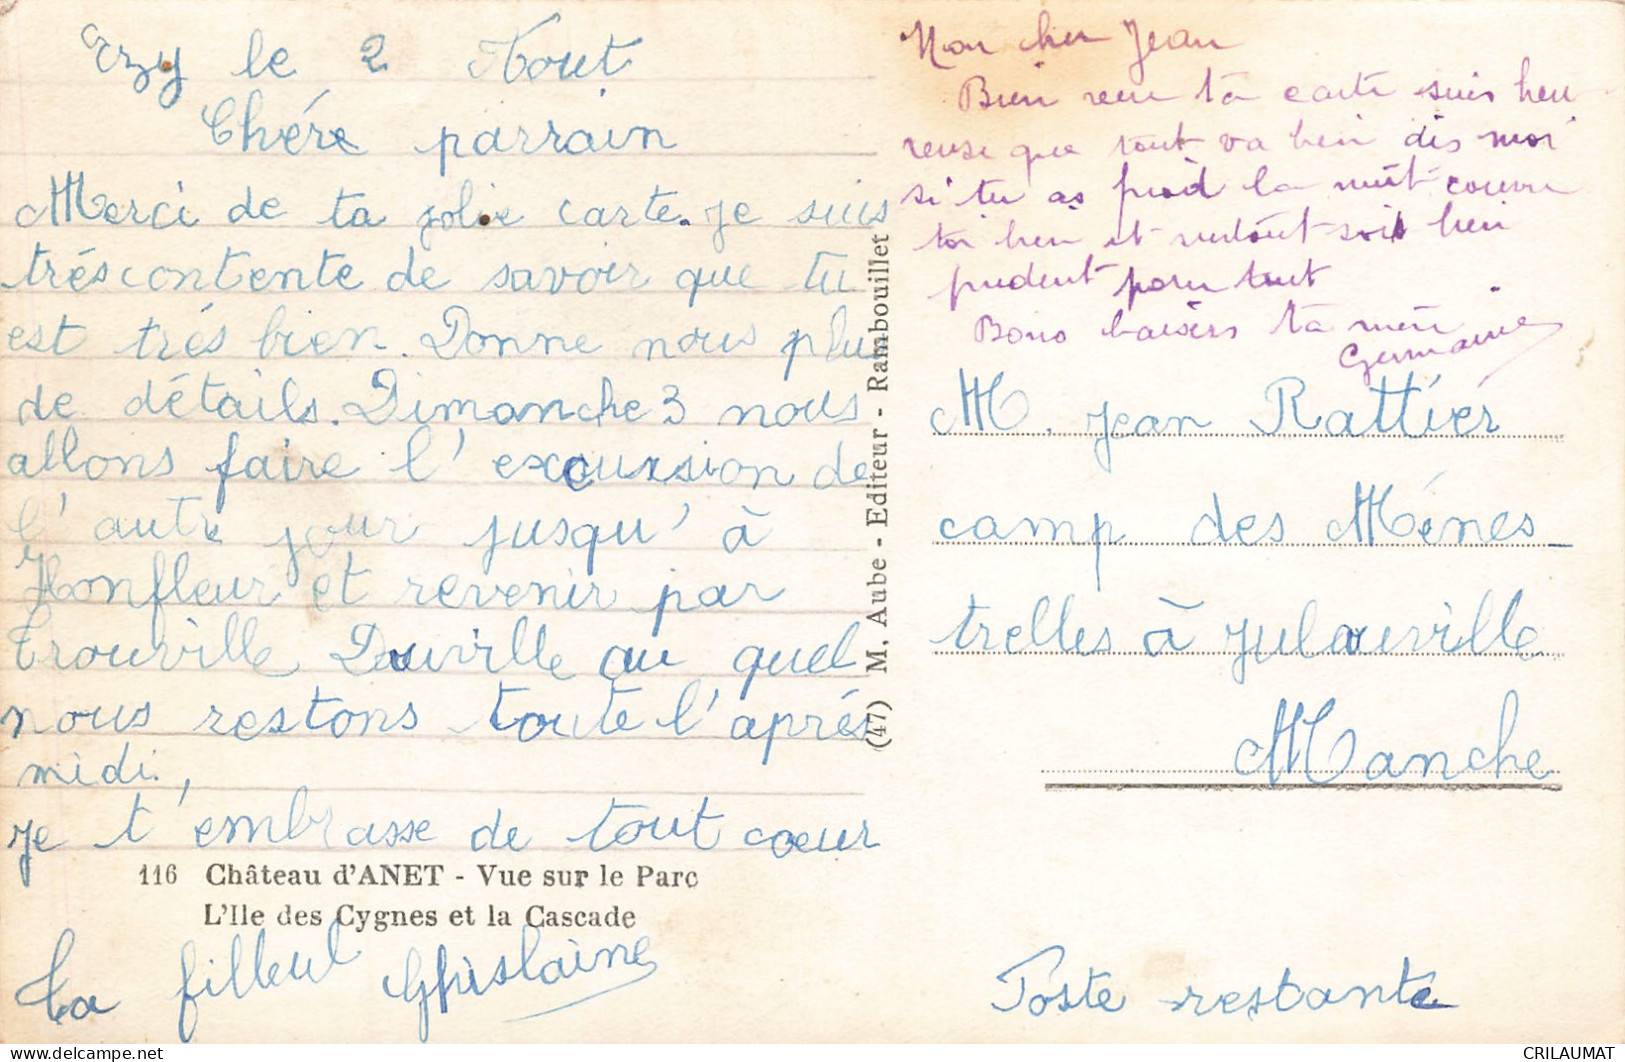 Ezy le 2 Aout
Chére parrain
Merci de ta jolie carte. je suis
trés contente de savoir que tu
est trés bien. Donne nous plus
de détails. Dimanche 3 nous
allons faire l'excursion de
l'autre jour jusqu'à
Honfleur et revenir par
Trouville Dauville au quel
nous restons toute l'aprés
midi,
je t'embrasse de tout coeur
116 Château d'ANET - Vue sur le Parc
L'Ile des Cygnes et la Cascade
Ta filleul Ghislaine
(47) M. Aube - Editeur - Rambouillet
Mon cher Jean
Bien reçu ta carte suis heu
reuse que tout va bien dis moi
si tu as froid la nuit couvre
toi bien et surtout sois bien
prudent pour tout
Bons baisers ta mère
Germaine
M. Jean Rattier
camp des Ménes_
trelles à Julouville
Manche
Poste restante
CRILAUMAT